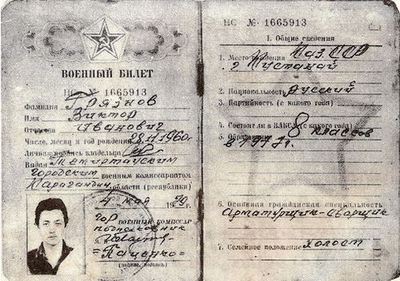 ВОЕННЫЙ БИЛЕТ
НС № 1665913
Фамилия Грязнов
Имя Виктор
Отчество Иванович
Число, месяц и год рождения 1960г.
Личная подпись владельца
Выдан Темиртауским
Городским военным комиссариатом
Карагандин. области (республики)
4 мая
Гор военный комиссар
подполковник
НС № 1665913
I. Общие сведения
1. Место рождения Каз.ССР
2. Национальность Русский
3. Партийность (с какого года)
4. Состоит ли в ВЛКСМ (с какого года)
5. Образование 8 классов
в 1977г.
6. Основная гражданская специальность
Арматурщик-Сварщик
7. Семейное положение холост